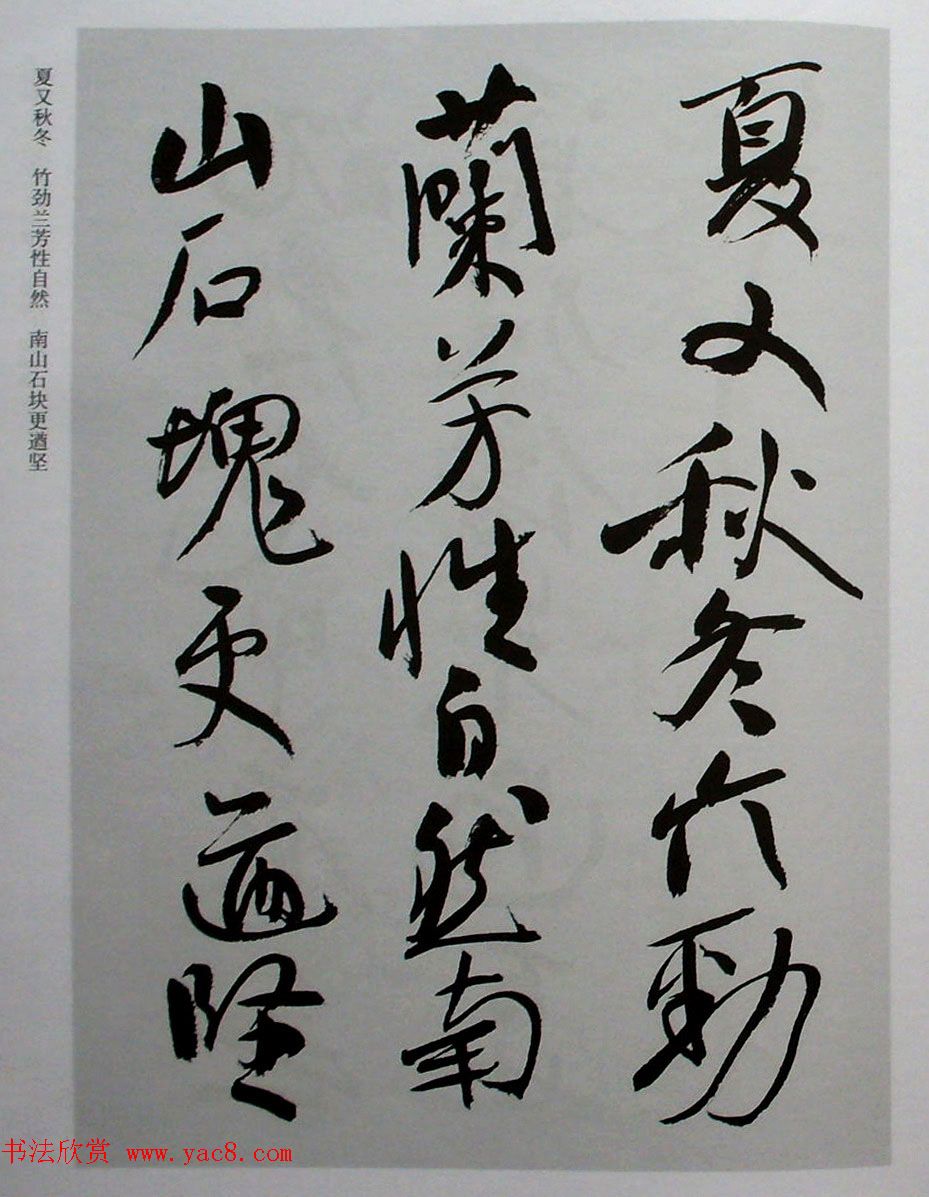 夏又秋冬竹勁
蘭芳性自然南
山石塊更遒堅
夏又秋冬　竹劲兰芳性自然　南山石块更遒坚
书法欣赏 www.yac8.com